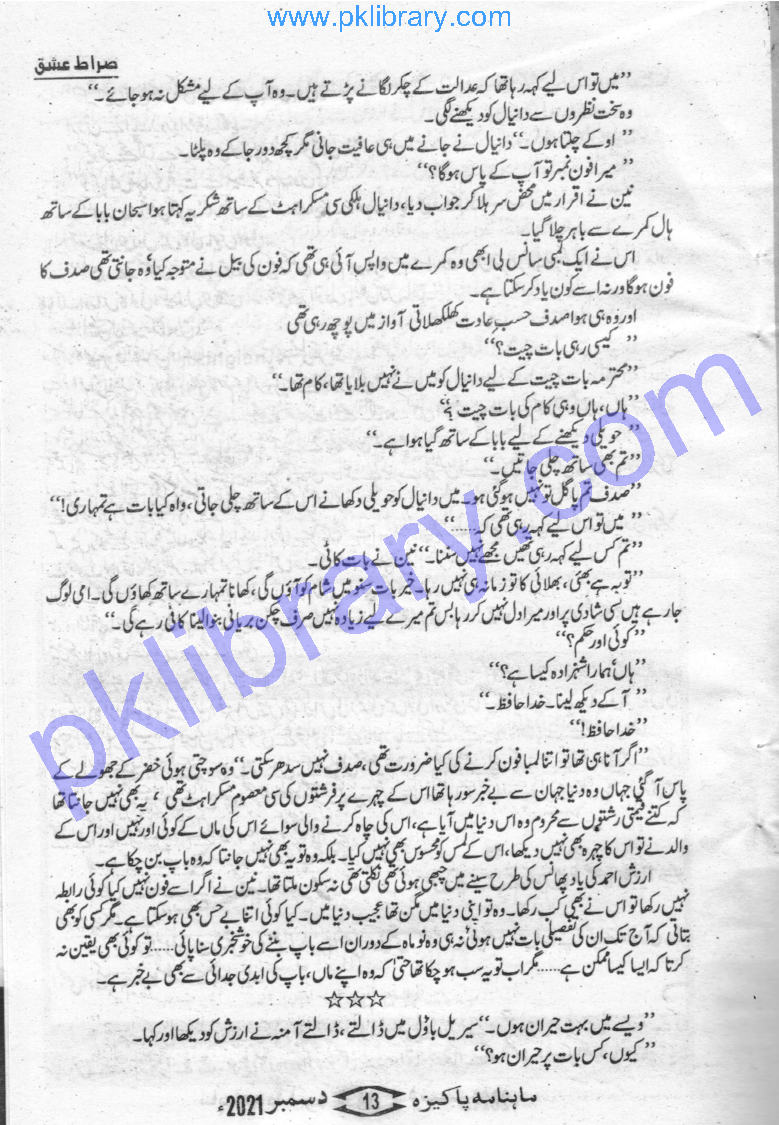 www.pklibrary.com
صراط عشق
’’میں تو اس لیے کہہ رہا تھا کہ عدالت کے چکر لگانے پڑتے ہیں۔ وہ آپ کے لیے مشکل نہ ہو جائے۔‘‘
وہ سخت نظروں سے دانیال کو دیکھنے لگی۔
’’او کے چلتا ہوں۔‘‘ دانیال نے جانے میں ہی عافیت جانی مگر کچھ دور جا کے وہ پلٹا۔
’’میرا فون نمبر تو آپ کے پاس ہوگا؟‘‘
نین نے اقرار میں محض سر ہلا کر جواب دیا، دانیال ہلکی سی مسکراہٹ کے ساتھ شکریہ کہتا ہوا سبحان بابا کے ساتھ
ہال کمرے سے باہر چلا گیا۔
اس نے ایک لمبی سانس لی ابھی وہ کمرے میں واپس آئی ہی تھی کہ فون کی بیل نے متوجہ کیا وہ جانتی تھی صدف کا
فون ہوگا ورنہ اسے کون یاد کر سکتا ہے۔
اور وہ ہی ہوا صدف حسبِ عادت کھلکھلاتی آواز میں پوچھ رہی تھی
’’کیسی رہی بات چیت؟‘‘
’’محترمہ بات چیت کے لیے دانیال کو میں نے نہیں بلایا تھا، کام تھا۔‘‘
’’ہاں، ہاں وہی کام کی بات چیت؟‘‘
’’حویلی دیکھنے کے لیے بابا کے ساتھ گیا ہوا ہے۔‘‘
’’تم بھی ساتھ چلی جاتیں۔‘‘
’’صدف تم پاگل تو نہیں ہو گئی ہو۔ میں دانیال کو حویلی دکھانے اس کے ساتھ چلی جاتی، واہ کیا بات ہے تمہاری!‘‘
’’میں تو اس لیے کہہ رہی تھی کہ……‘‘
’’تم کس لیے کہہ رہی تھیں مجھے نہیں سننا۔‘‘ نین نے بات کاٹی۔
’’توبہ ہے بھئی، بھلائی کا تو زمانہ ہی نہیں رہا۔ خیر بات سنو میں شام کو آؤں گی، کھانا تمہارے ساتھ کھاؤں گی۔ امی لوگ
جا رہے ہیں کسی شادی پر اور میرا دل نہیں کر رہا بس تم میرے لیے زیادہ نہیں صرف چکن بریانی بنوا لینا کافی رہے گی۔‘‘
’’کوئی اور حکم؟‘‘
’’ہاں ہمارا شہزادہ کیسا ہے؟‘‘
’’آ کے دیکھ لینا۔ خدا حافظ۔‘‘
’’خدا حافظ!‘‘
’’اگر آنا ہی تھا تو اتنا لمبا فون کرنے کی کیا ضرورت تھی، صدف نہیں سدھر سکتی۔‘‘ وہ سوچتی ہوئی خضر کے جھولے کے
پاس آ گئی جہاں وہ دنیا جہان سے بے خبر سو رہا تھا اس کے چہرے پر فرشتوں کی سی معصوم مسکراہٹ تھی، یہ بھی نہیں جانتا تھا
کہ کتنے قیمتی رشتوں سے محروم وہ اس دنیا میں آیا ہے، اس کی چاہ کرنے والی سوائے اس کی ماں کے کوئی اور نہیں اور اس کے
والد نے تو اس کا چہرہ بھی نہیں دیکھا، اس کے لمس کو محسوس بھی نہیں کیا۔ بلکہ وہ تو یہ بھی نہیں جانتا کہ وہ باپ بن چکا ہے۔
ارزش احمد کی یاد پھانس کی طرح سینے میں چبھی ہوئی تھی نکلتی تھی نہ سکون ملتا تھا۔ نین نے اگر اسے فون نہیں کیا کوئی رابطہ
نہیں رکھا تو اس نے بھی کب رکھا۔ وہ تو اپنی دنیا میں مگن تھا عجیب دنیا میں۔ کیا کوئی اتنا بے حس بھی ہو سکتا ہے۔ مگر کسی کو بھی
بتاتی کہ آج تک ان کی تفصیلی بات نہیں ہوئی نہ ہی وہ نو ماہ کے دوران اسے باپ بننے کی خوشخبری سنا پائی…… تو کوئی بھی یقین نہ
کرتا کہ ایسا کیسا ممکن ہے…… مگر اب تو یہ سب ہو چکا تھا حتیٰ کہ وہ اپنے ماں، باپ کی ابدی جدائی سے بھی بے خبر ہے۔
☆☆☆
’’ویسے میں بہت حیران ہوں۔‘‘ سیریل باؤل میں ڈالتے، ڈالتے آمنہ نے ارزش کو دیکھا اور کہا۔
’’کیوں، کس بات پر حیران ہو؟‘‘
ماہنامہ پاکیزہ 13 دسمبر 2021ء
pklibrary.com